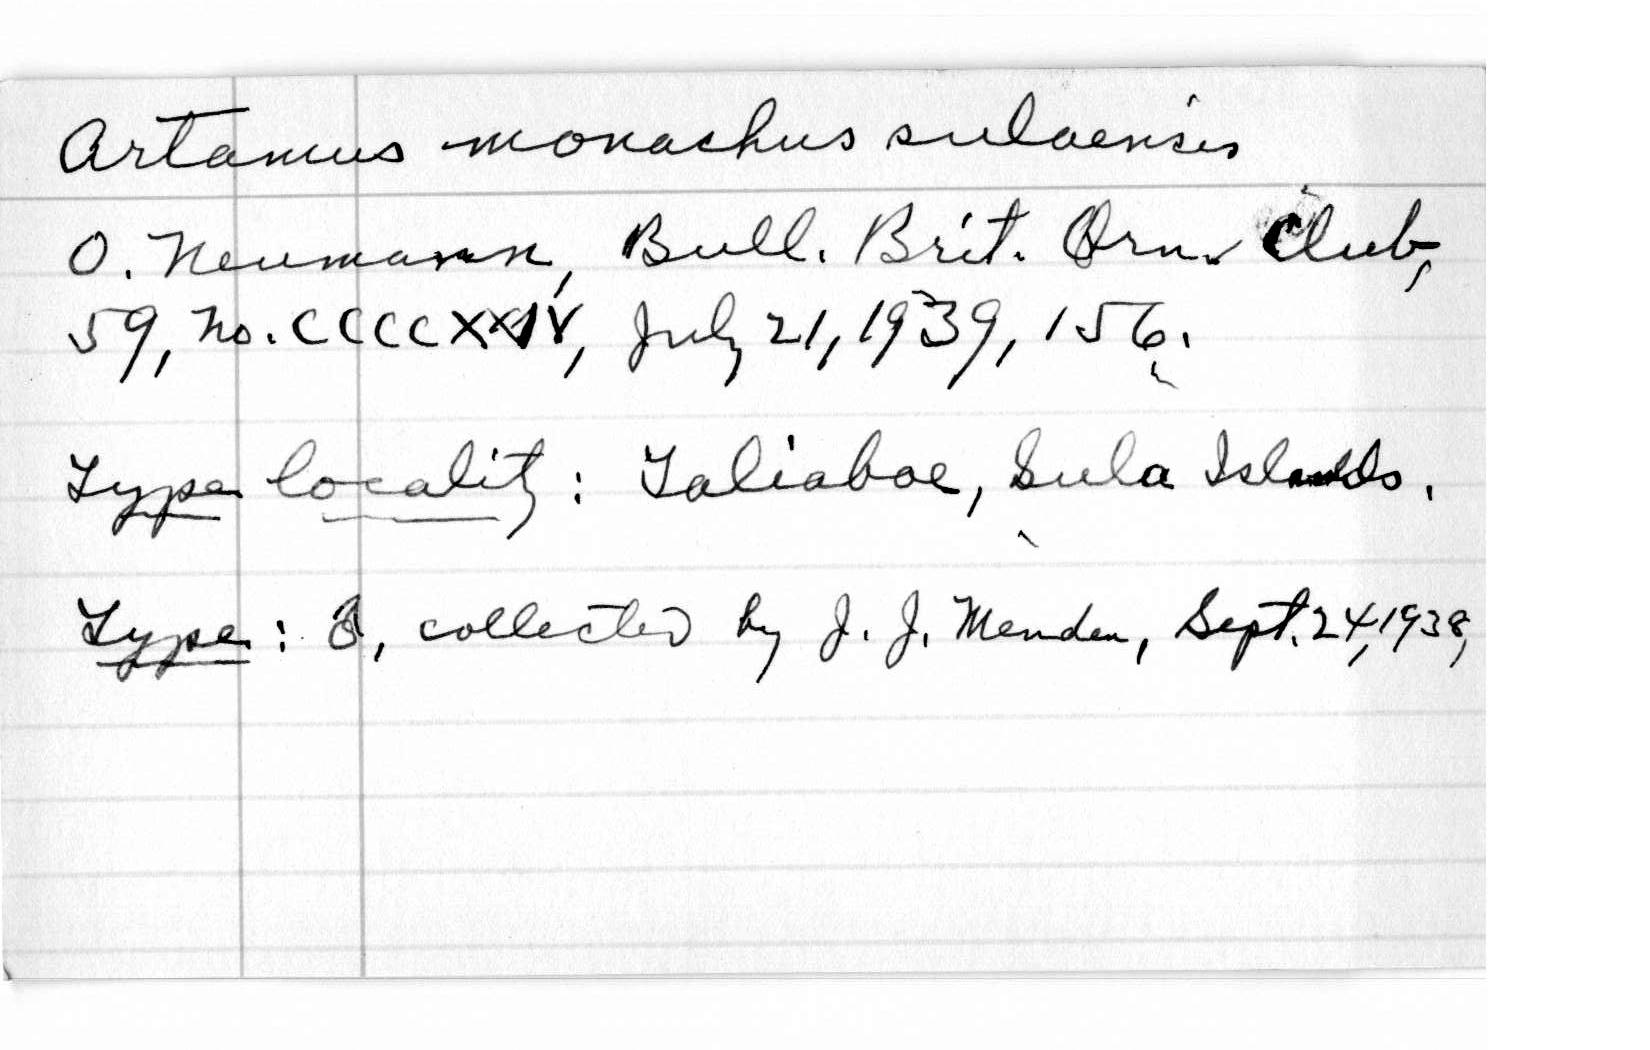 Artamus monachus sulaensis
O. Neumann, Bull. Brit. Orn. Club,
59, no. CCCCXXIV, July 21, 1939, 156.
Type locality: Taliaboe, Sula Islands.
Type: ♂, collected by J. J. Menden, Sept. 24, 1938,